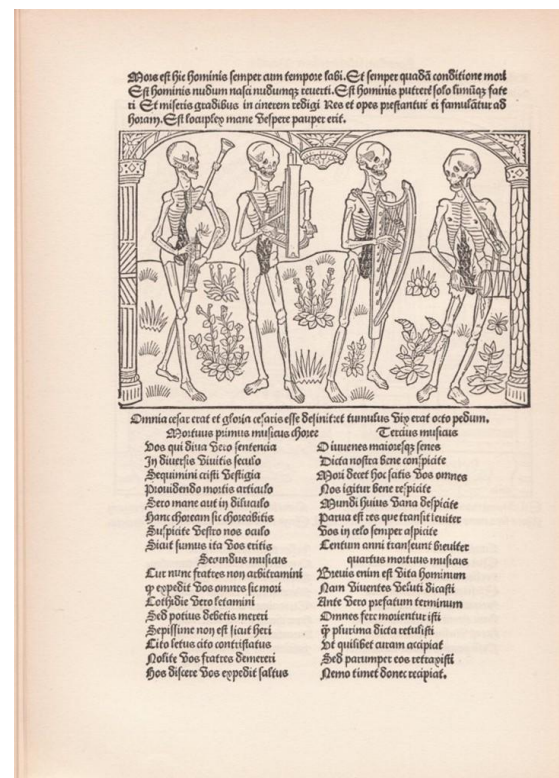 Mors est hic hominis semper cum tempore labi. Et semper quadã conditione mori
Est hominis nudum nasci nudumqꝫ reuerti. Est hominis putrere solo limũqꝫ fate
ri Et miseris gradibus in cinerem redigi Res et opes prestantur ei famulãtur ad
horam. Est locuplex mane vespere pauper erit.
Omnia cesar erat et gloria cesaris esse desinit et tumulus vix erat octo pedum.
Mortuus primus musicus choree
Vos qui diuina vero sentencia
In diuersis viuitis seculo
Sequimini cristi vestigia
Prouidendo mortis articulo
Sero mane aut in diluculo
Hanc choream sic choreabitis
Suspicite vestro nos oculo
Sicut sumus ita vos eritis
Secundus musicus
Cur nunc fratres non arbitramini
ꝙ expedit vos omnes sic mori
Cothidie vero letamini
Sed potius debetis mereri
Sepissime non est sicut heri
Cito letus cito contristatus
Nolite vos fratres demereri
Hos discere vos expedit saltus
Tercius musicus
O iuuenes maioresqꝫ senes
Dicta nostra bene conspicite
Mori decet hoc satis vos omnes
Nos igitur bene respicite
Mundi huius vana despicite
Parua est res que transit leuiter
Vos in celo semper aspicite
Centum anni transeunt breuiter
quartus mortuus musicus
Breuis enim est vita hominum
Nam viuentes veluti dicasti
Ante vero prefatum terminum
Omnes fere morientur isti
ꝙ plurima dicta retulisti
Vt quilibet curam accipiat
Sed parumper eos retraxisti
Nemo timet donec recipiat.